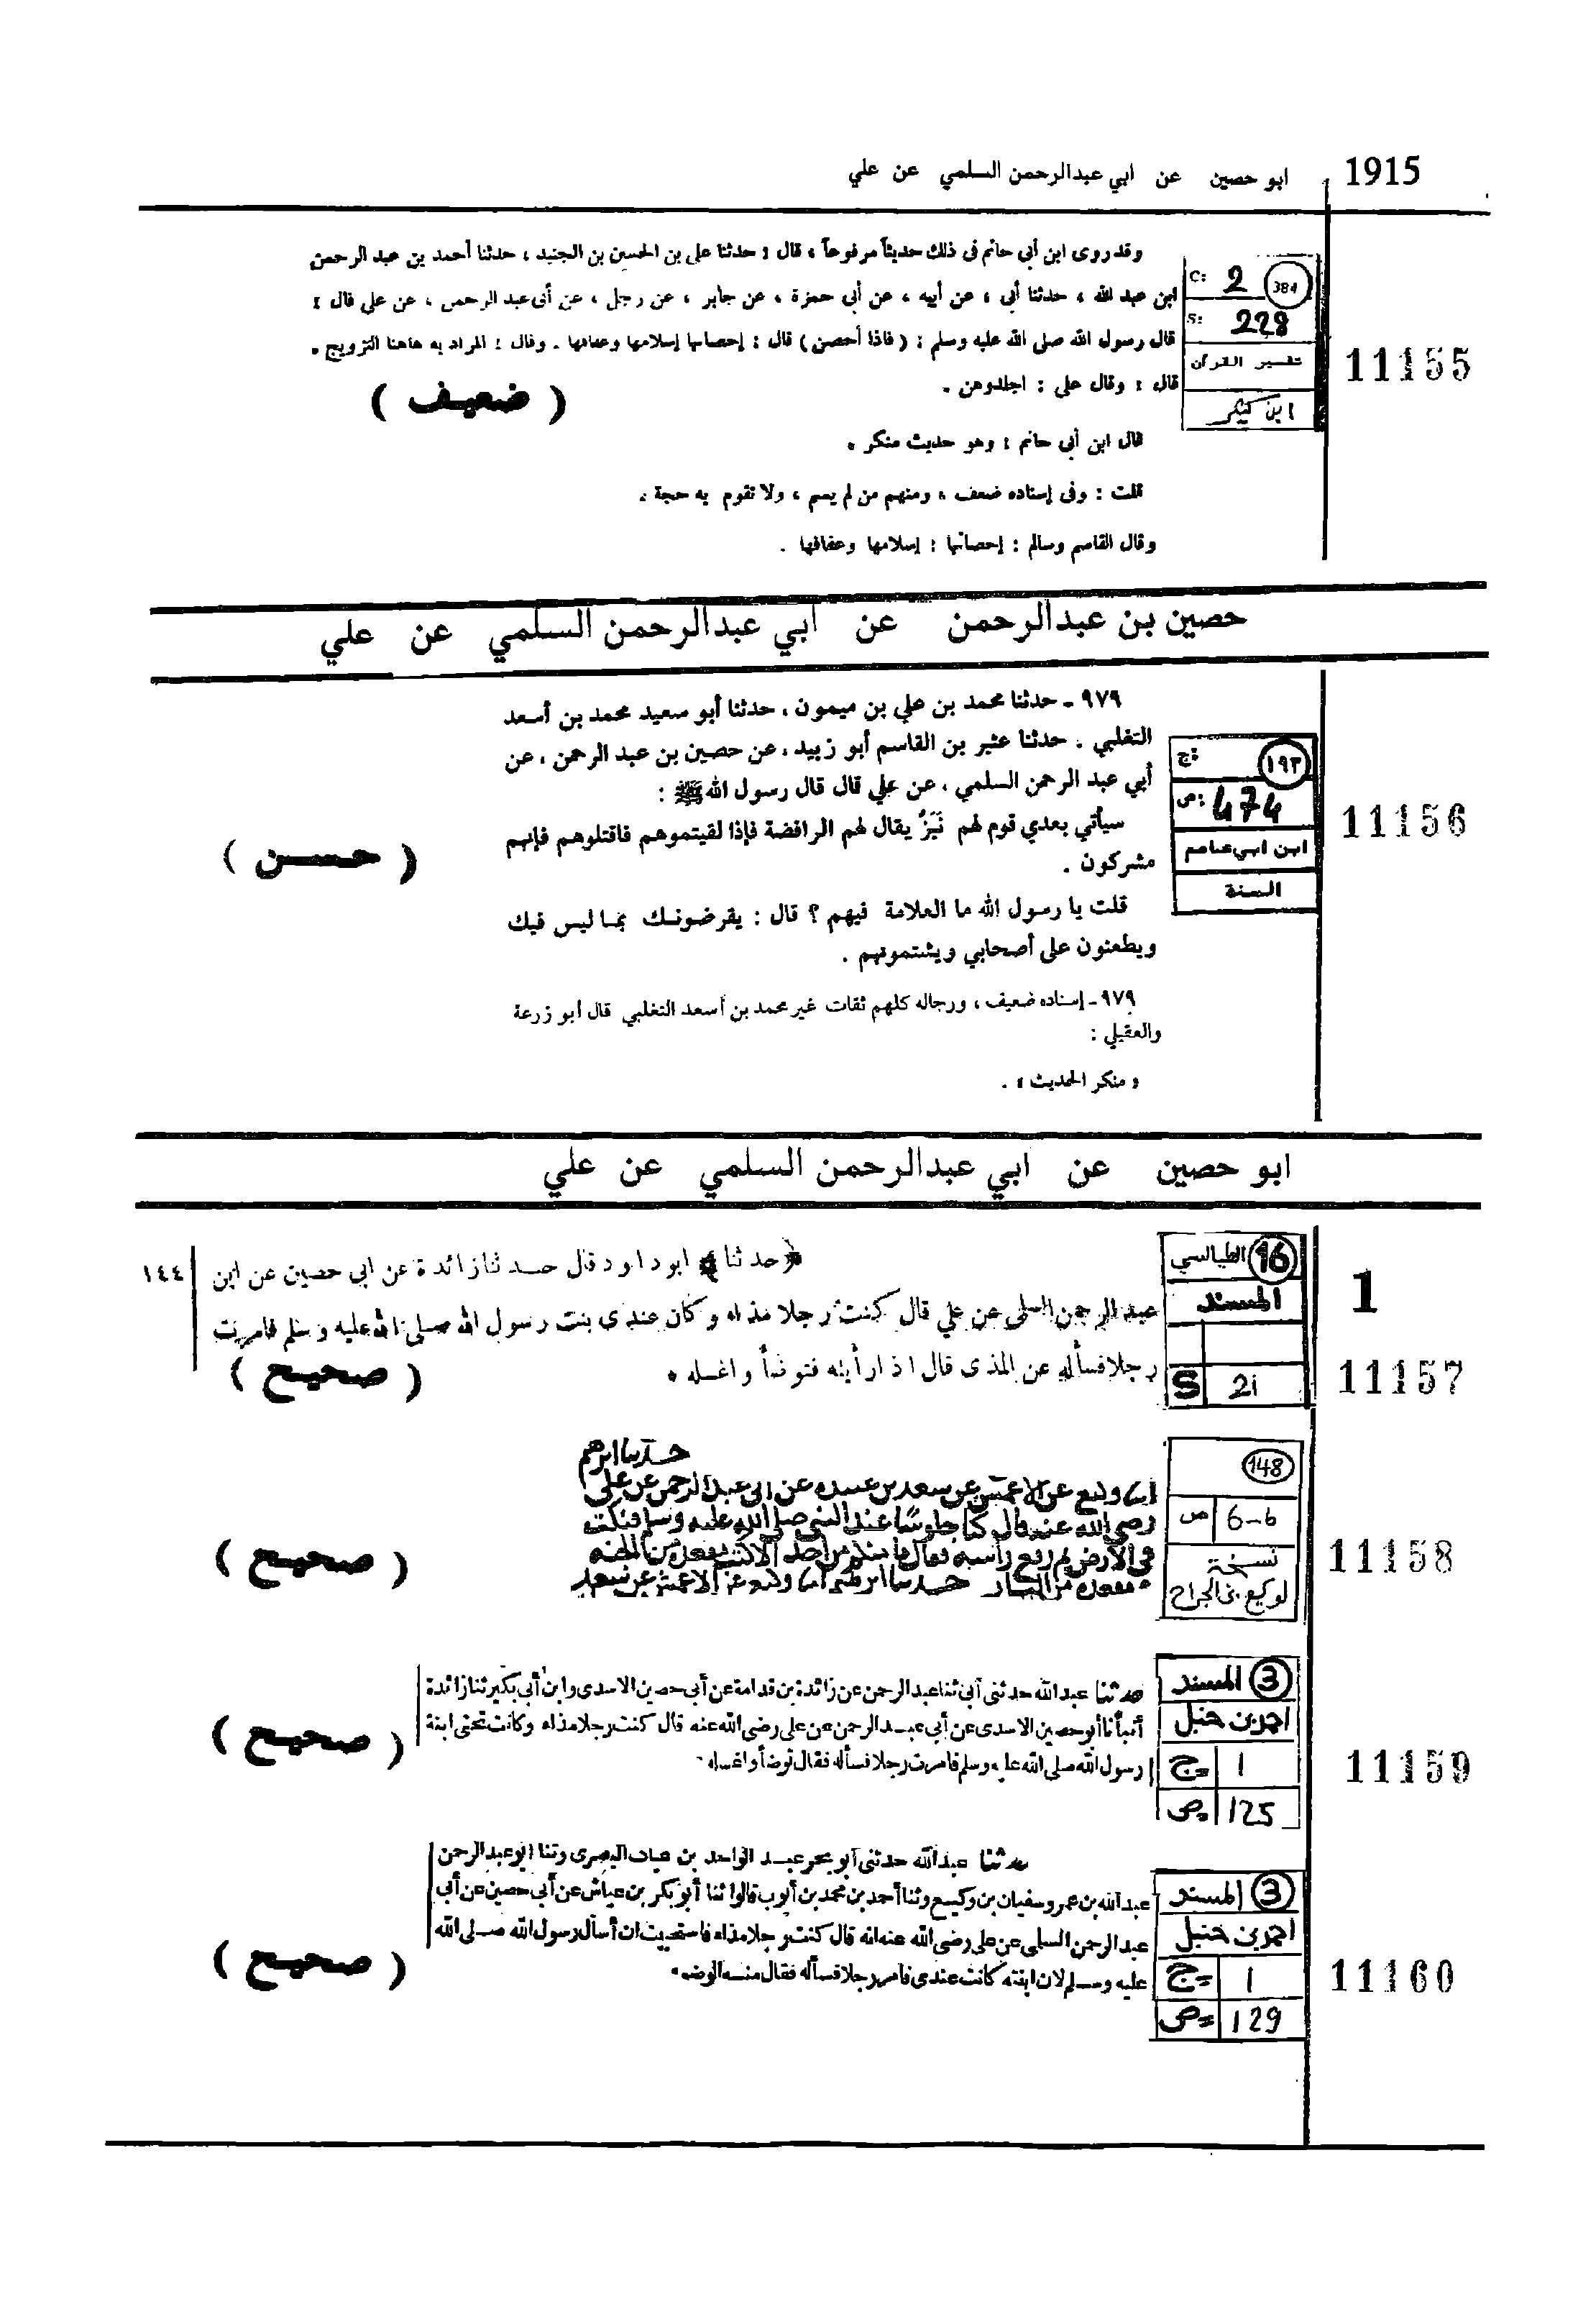 1915
ابو حصين عن ابي عبدالرحمن السلمي عن علي
وقد روى ابن أبي حاتم فى ذلك حديثاً مرفوعاً ، قال : حدثنا على بن الحسين بن الجنيد ، حدثنا أحمد بن عبد الرحمن
ابن عبد الله ، حدثنا أبى ، عن أبيه ، عن أبى حمزة ، عن جابر ، عن رجل ، عن أبى عبد الرحمن ، عن على قال :
قال رسول الله صلى الله عليه وسلم : ( فاذا أحصن ) قال : إحصانها إسلامها وعفافها . وقال : المراد به هاهنا التزويج .
قال : وقال على : اجلدوهن .
( ضعيف )
قال ابن أبى حاتم : وهو حديث منكر .
قلت : وفى إسناده ضعف ، ومنهم من لم يسم ، ولا تقوم به حجة .
وقال القاسم وسالم : إحصانها : إسلامها وعفافها .
C: 2 384
S: 228
تفسير القرآن
ابن كثير
11155
حصين بن عبدالرحمن عن ابي عبدالرحمن السلمي عن علي
٩٧٩ - حدثنا محمد بن علي بن ميمون ، حدثنا أبو سعيد محمد بن أسعد
التغلبي . حدثنا عبثر بن القاسم أبو زبيد ، عن حصين بن عبد الرحمن ، عن
أبي عبد الرحمن السلمي ، عن علي قال قال رسول الله ﷺ :
سيأتي بعدي قوم لهم نَبَزٌ يقال لهم الرافضة فإذا لقيتموهم فاقتلوهم فإنهم
مشركون .
( حسن )
قلت يا رسول الله ما العلامة فيهم ؟ قال : يقرضونك بما ليس فيك
ويطعنون على أصحابي ويشتمونهم .
٩٧٩ - إسناده ضعيف ، ورجاله كلهم ثقات غير محمد بن أسعد التغلبي قال أبو زرعة
والعقيلي :
« منكر الحديث » .
ج: ١٩٣
ص: 474
ابن ابي عاصم
السنة
11156
ابو حصين عن ابي عبدالرحمن السلمي عن علي
١٤٤
﴿ حدثنا ﴾ ابو داود قال حدثنا زائدة عن ابى حصين عن ابن
عبد الرحمن السلمى عن علي قال كنت رجلا مذاء وكان عندى بنت رسول الله صلى الله عليه وسلم فامرت
رجلا فسأله عن المذى قال اذا رأيته فتوضأ واغسله *
( صحيح )
16 الطيالسي
المسند
S 21
1
11157
حدثنا ابرهيم
ابنا وكيع عن الاعمش عن سعد بن عبيده عن ابى عبد الرحمن عن على
رضي الله عنه قال كنا جلوسا عند النبي صلى الله عليه وسلم فنكت
في الارض ثم رفع راسه فقال ما منكم من احد الا كتب مقعده من الجنه
ومقعده من النار حدثنا ابرهيم ابنا وكيع عن الاعمش عن سعد
( صحيح )
148
ص 6-6
نسخة
لوكيع بن الجراح
11158
حدثنا عبد الله حدثنى أبى ثنا عبد الرحمن عن زائدة بن قدامة عن أبى حصين الاسدى وابن أبى بكير ثنا زائدة
أنبأنا أبو حصين الاسدى عن أبى عبد الرحمن عن على رضى الله عنه قال كنت رجلا مذاء وكانت تحتى ابنة
رسول الله صلى الله عليه وسلم فامرت رجلا فسأله فقال توضأ واغسله
( صحيح )
3 المسند
احمد بن حنبل
ج= 1
ص= 125
11159
حدثنا عبد الله حدثنى أبو بحر عبد الواحد بن غياث البصرى وثنا أبو عبد الرحمن
عبد الله بن عمر وسفيان بن وكيع وثنا أحمد بن محمد بن أيوب قالوا ثنا أبو بكر بن عياش عن أبى حصين عن أبى
عبد الرحمن السلمى عن على رضى الله عنه انه قال كنت رجلا مذاء فاستحييت ان أسأل رسول الله صلى الله
عليه وسلم لان ابنته كانت عندى فامرت رجلا فسأله فقال منه الوضوء
( صحيح )
3 المسند
احمد بن حنبل
ج= 1
ص= 129
11160